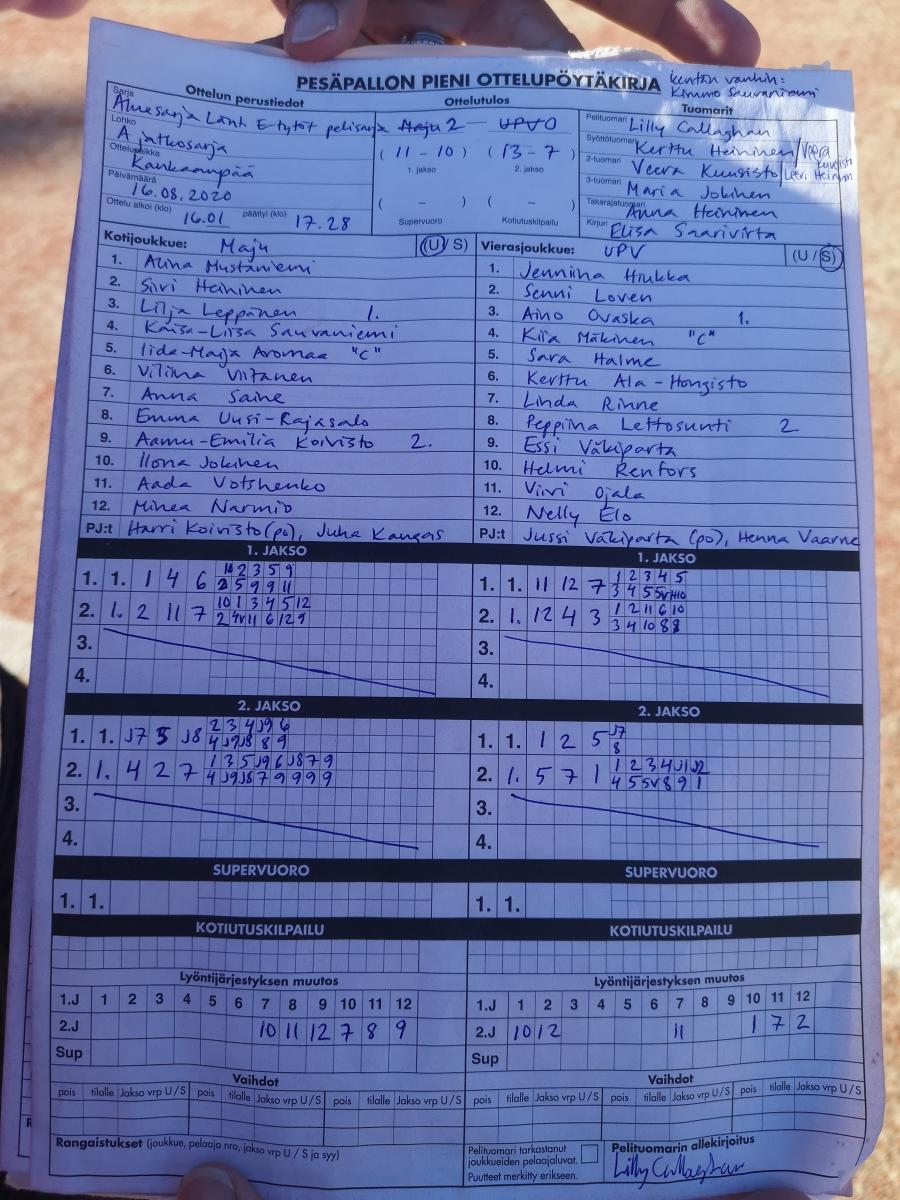 PESÄPALLON PIENI OTTELUPÖYTÄKIRJA
kentän vanhin:
Kimmo Sauvaniemi
Ottelun perustiedot
Ottelutulos
Tuomarit
Sarja Aluesarja Länt E-tytöt pelisarja
Lohko A jatkosarja
Ottelupaikka Kankaanpää
Päivämäärä 16.08.2020
Ottelu alkoi (klo) 16.01 päättyi (klo) 17.28
Maju 2 - UPV 0
( 11 - 10 ) ( 13 - 7 )
1. jakso 2. jakso
( - ) ( - )
Supervuoro Kotiutuskilpailu
Pelituomari Lilly Callaghan
Syöttötuomari Kerttu Heininen/Veera Kuusisto
2-tuomari Veera Kuusisto/Veeri Heininen
3-tuomari Maria Jokinen
Takarajatuomari Anna Heininen
Kirjuri Elisa Saarivirta
Kotijoukkue: Maju (U / S)
1. Alina Mustaniemi
2. Siiri Heininen
3. Lilja Leppänen 1.
4. Kaisa-Liisa Sauvaniemi
5. Iida-Maija Aromaa "C"
6. Viliina Viitanen
7. Anna Saine
8. Emma Uusi-Rajasalo
9. Aamu-Emilia Koivisto 2.
10. Ilona Jokinen
11. Aada Votshenko
12. Minea Narmio
PJ:t Harri Koivisto (po), Juha Kangas
Vierasjoukkue: UPV (U / S)
1. Jenniina Hiukka
2. Senni Loven
3. Aino Ovaska 1.
4. Kiia Mäkinen "C"
5. Sara Halme
6. Kerttu Ala-Hongisto
7. Linda Rinne
8. Peppiina Lettosunti 2
9. Essi Väkiparta
10. Helmi Renfors
11. Viivi Ojala
12. Nelly Elo
PJ:t Jussi Väkiparta (po), Henna Vaarne
1. JAKSO
1. 1. 1 4 6 10 2 3 5 9
2 5 9 9 11
2. 1. 2 11 7 10 1 3 4 5 12
2 4v 11 6 12 9
3.
4.
1. JAKSO
1. 1. 11 12 7 1 2 3 4 5
3 4 5 5v 10
2. 1. 12 4 3 1 2 11 6 10
3 4 10 8 8
3.
4.
2. JAKSO
1. 1. J7 5 J8 2 3 4 J9 6
4 J9 J8 8 9
2. 1. 4 2 7 1 3 5 J9 6 J8 7 9
4 J9 J8 7 9 9 9 9
3.
4.
2. JAKSO
1. 1. 1 2 5 J7
8
2. 1. 5 7 1 1 2 3 4 J1 J2
4 5 5v 8 9 1
3.
4.
SUPERVUORO
1. 1.
SUPERVUORO
1. 1.
KOTIUTUSKILPAILU
KOTIUTUSKILPAILU
Lyöntijärjestyksen muutos
1.J 1 2 3 4 5 6 7 8 9 10 11 12
2.J 10 11 12 7 8 9
Sup
Lyöntijärjestyksen muutos
1.J 1 2 3 4 5 6 7 8 9 10 11 12
2.J 10 12 11 1 7 2
Sup
Vaihdot
pois tilalle Jakso vrp U / S pois tilalle Jakso vrp U / S pois tilalle Jakso vrp U / S
Vaihdot
pois tilalle Jakso vrp U / S pois tilalle Jakso vrp U / S pois tilalle Jakso vrp U / S
Rangaistukset (joukkue, pelaaja nro, jakso vrp U / S ja syy)
Pelituomari tarkastanut
joukkueiden pelaajaluvat.
Puutteet merkitty erikseen.
Pelituomarin allekirjoitus
Lilly Callaghan